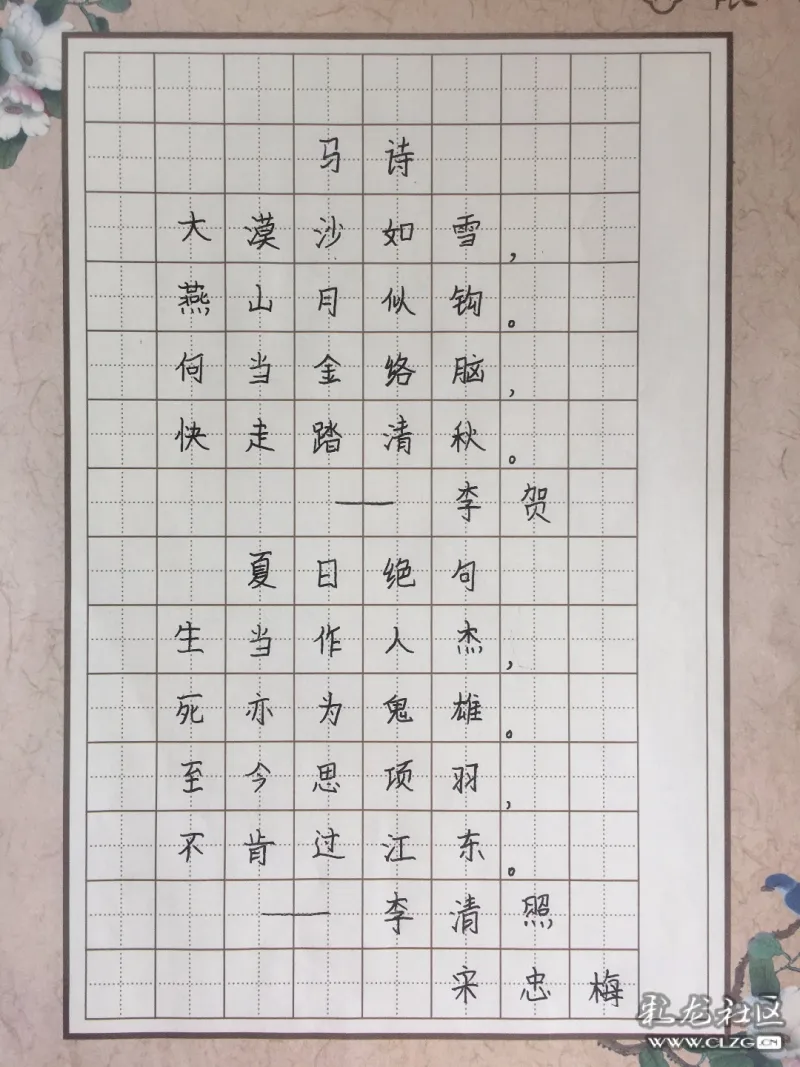 马诗
大漠沙如雪，
燕山月似钩。
何当金络脑，
快走踏清秋。
——李贺
夏日绝句
生当作人杰，
死亦为鬼雄。
至今思项羽，
不肯过江东。
——李清照
宋忠梅
龙社区
WWW.CLZG.CN